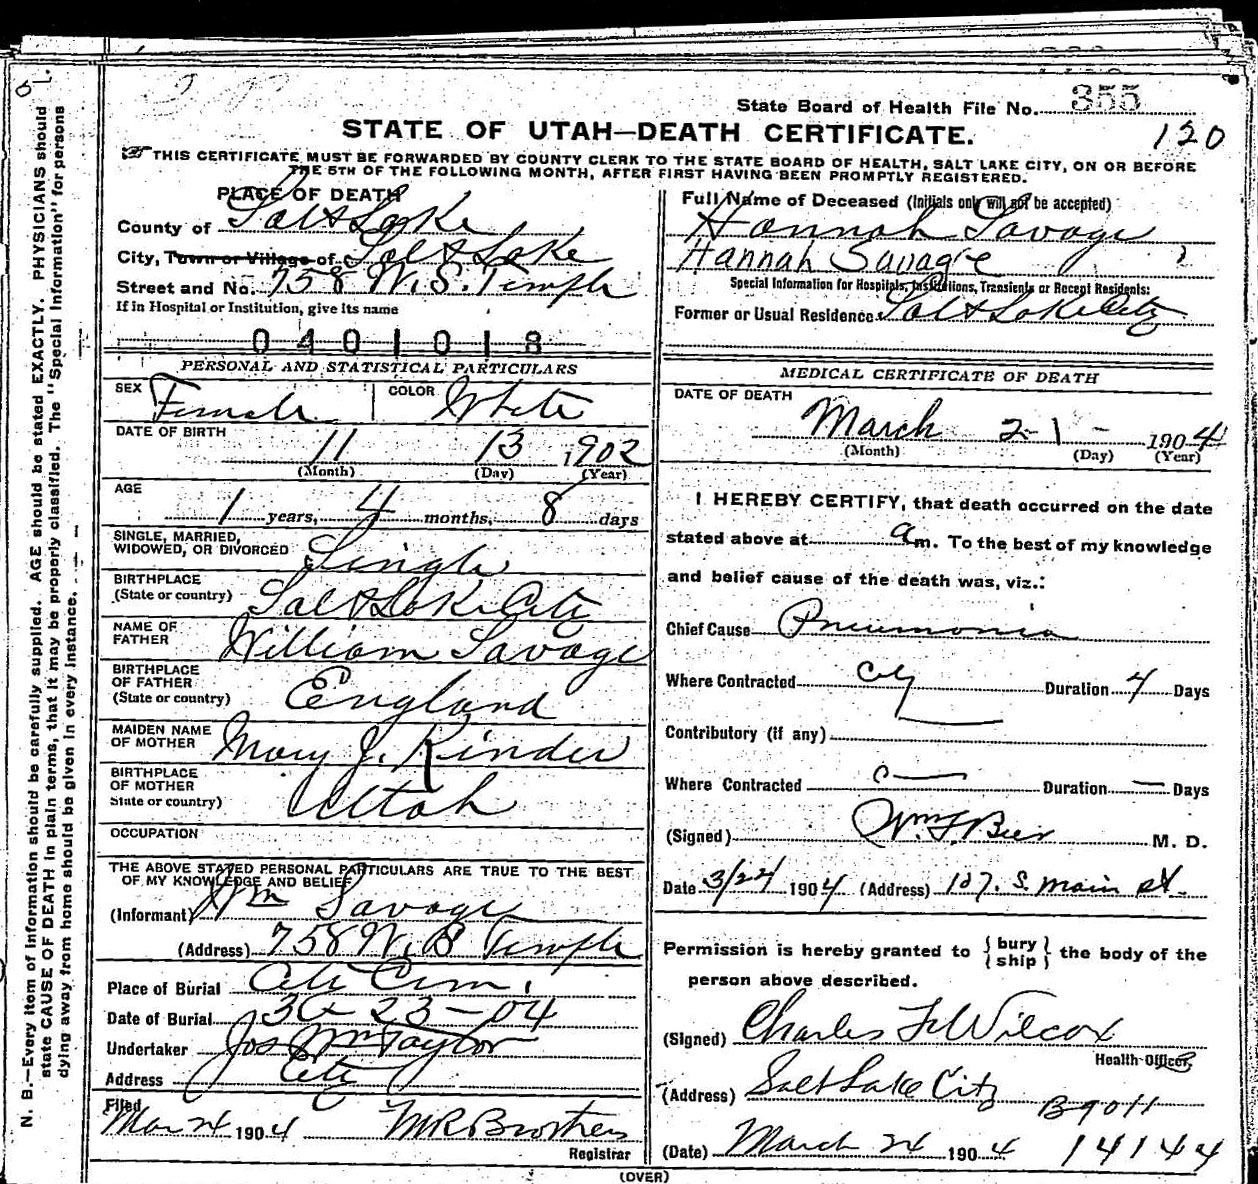 State Board of Health File No. 355
STATE OF UTAH—DEATH CERTIFICATE.
120
THIS CERTIFICATE MUST BE FORWARDED BY COUNTY CLERK TO THE STATE BOARD OF HEALTH, SALT LAKE CITY, ON OR BEFORE
THE 5TH OF THE FOLLOWING MONTH, AFTER FIRST HAVING BEEN PROMPTLY REGISTERED.
PLACE OF DEATH
County of Salt Lake
City, Town or Village of Salt Lake
Street and No. 758 W. S. Temple
If in Hospital or Institution, give its name
0401018
Full Name of Deceased (Initials only will not be accepted)
Hannah Savage
Hannah Savage
Special Information for Hospitals, Institutions, Transients or Recent Residents:
Former or Usual Residence Salt Lake City
PERSONAL AND STATISTICAL PARTICULARS
SEX Female COLOR White
DATE OF BIRTH 11 13 1902
(Month) (Day) (Year)
AGE
1 years, 4 months, 8 days
SINGLE, MARRIED,
WIDOWED, OR DIVORCED Single
BIRTHPLACE
(State or country) Salt Lake City
NAME OF
FATHER William Savage
BIRTHPLACE
OF FATHER
(State or country) England
MAIDEN NAME
OF MOTHER Mary J. Kinder
BIRTHPLACE
OF MOTHER
State or country) Utah
OCCUPATION
THE ABOVE STATED PERSONAL PARTICULARS ARE TRUE TO THE BEST
OF MY KNOWLEDGE AND BELIEF
(Informant) Wm Savage
(Address) 758 W. Temple
Place of Burial City Cem.
Date of Burial 23-04
Undertaker Jos Wm Taylor
Address City
Filed
Mar 24 1904 M R Brothers
Registrar
MEDICAL CERTIFICATE OF DEATH
DATE OF DEATH
March 21 - 1904
(Month) (Day) (Year)
I HEREBY CERTIFY, that death occurred on the date
stated above at a m. To the best of my knowledge
and belief cause of the death was, viz.:
Chief Cause Pneumonia
Where Contracted City Duration 4 Days
Contributory (if any)
Where Contracted Duration — Days
(Signed) Wm F Beer M. D.
Date 3/24 1904 (Address) 107. S. Main st.
Permission is hereby granted to {bury
ship} the body of the
person above described.
(Signed) Charles F Wilcox
Health Officer.
(Address) Salt Lake City
B9011
(Date) March 24 1904 14144
(OVER)
N. B.—Every item of information should be carefully supplied. AGE should be stated EXACTLY. PHYSICIANS should
state CAUSE OF DEATH in plain terms, that it may be properly classified. The "Special Information" for persons
dying away from home should be given in every instance.